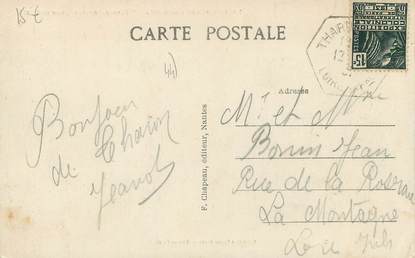 15 €
CARTE POSTALE
44
THAR
12
LOIRE
15c
Adresse
Bonjour
de Tharon
Jeanot
F. Chapeau, éditeur, Nantes
Mr et Mme
Bonin Jean
Rue de la
La Montagne